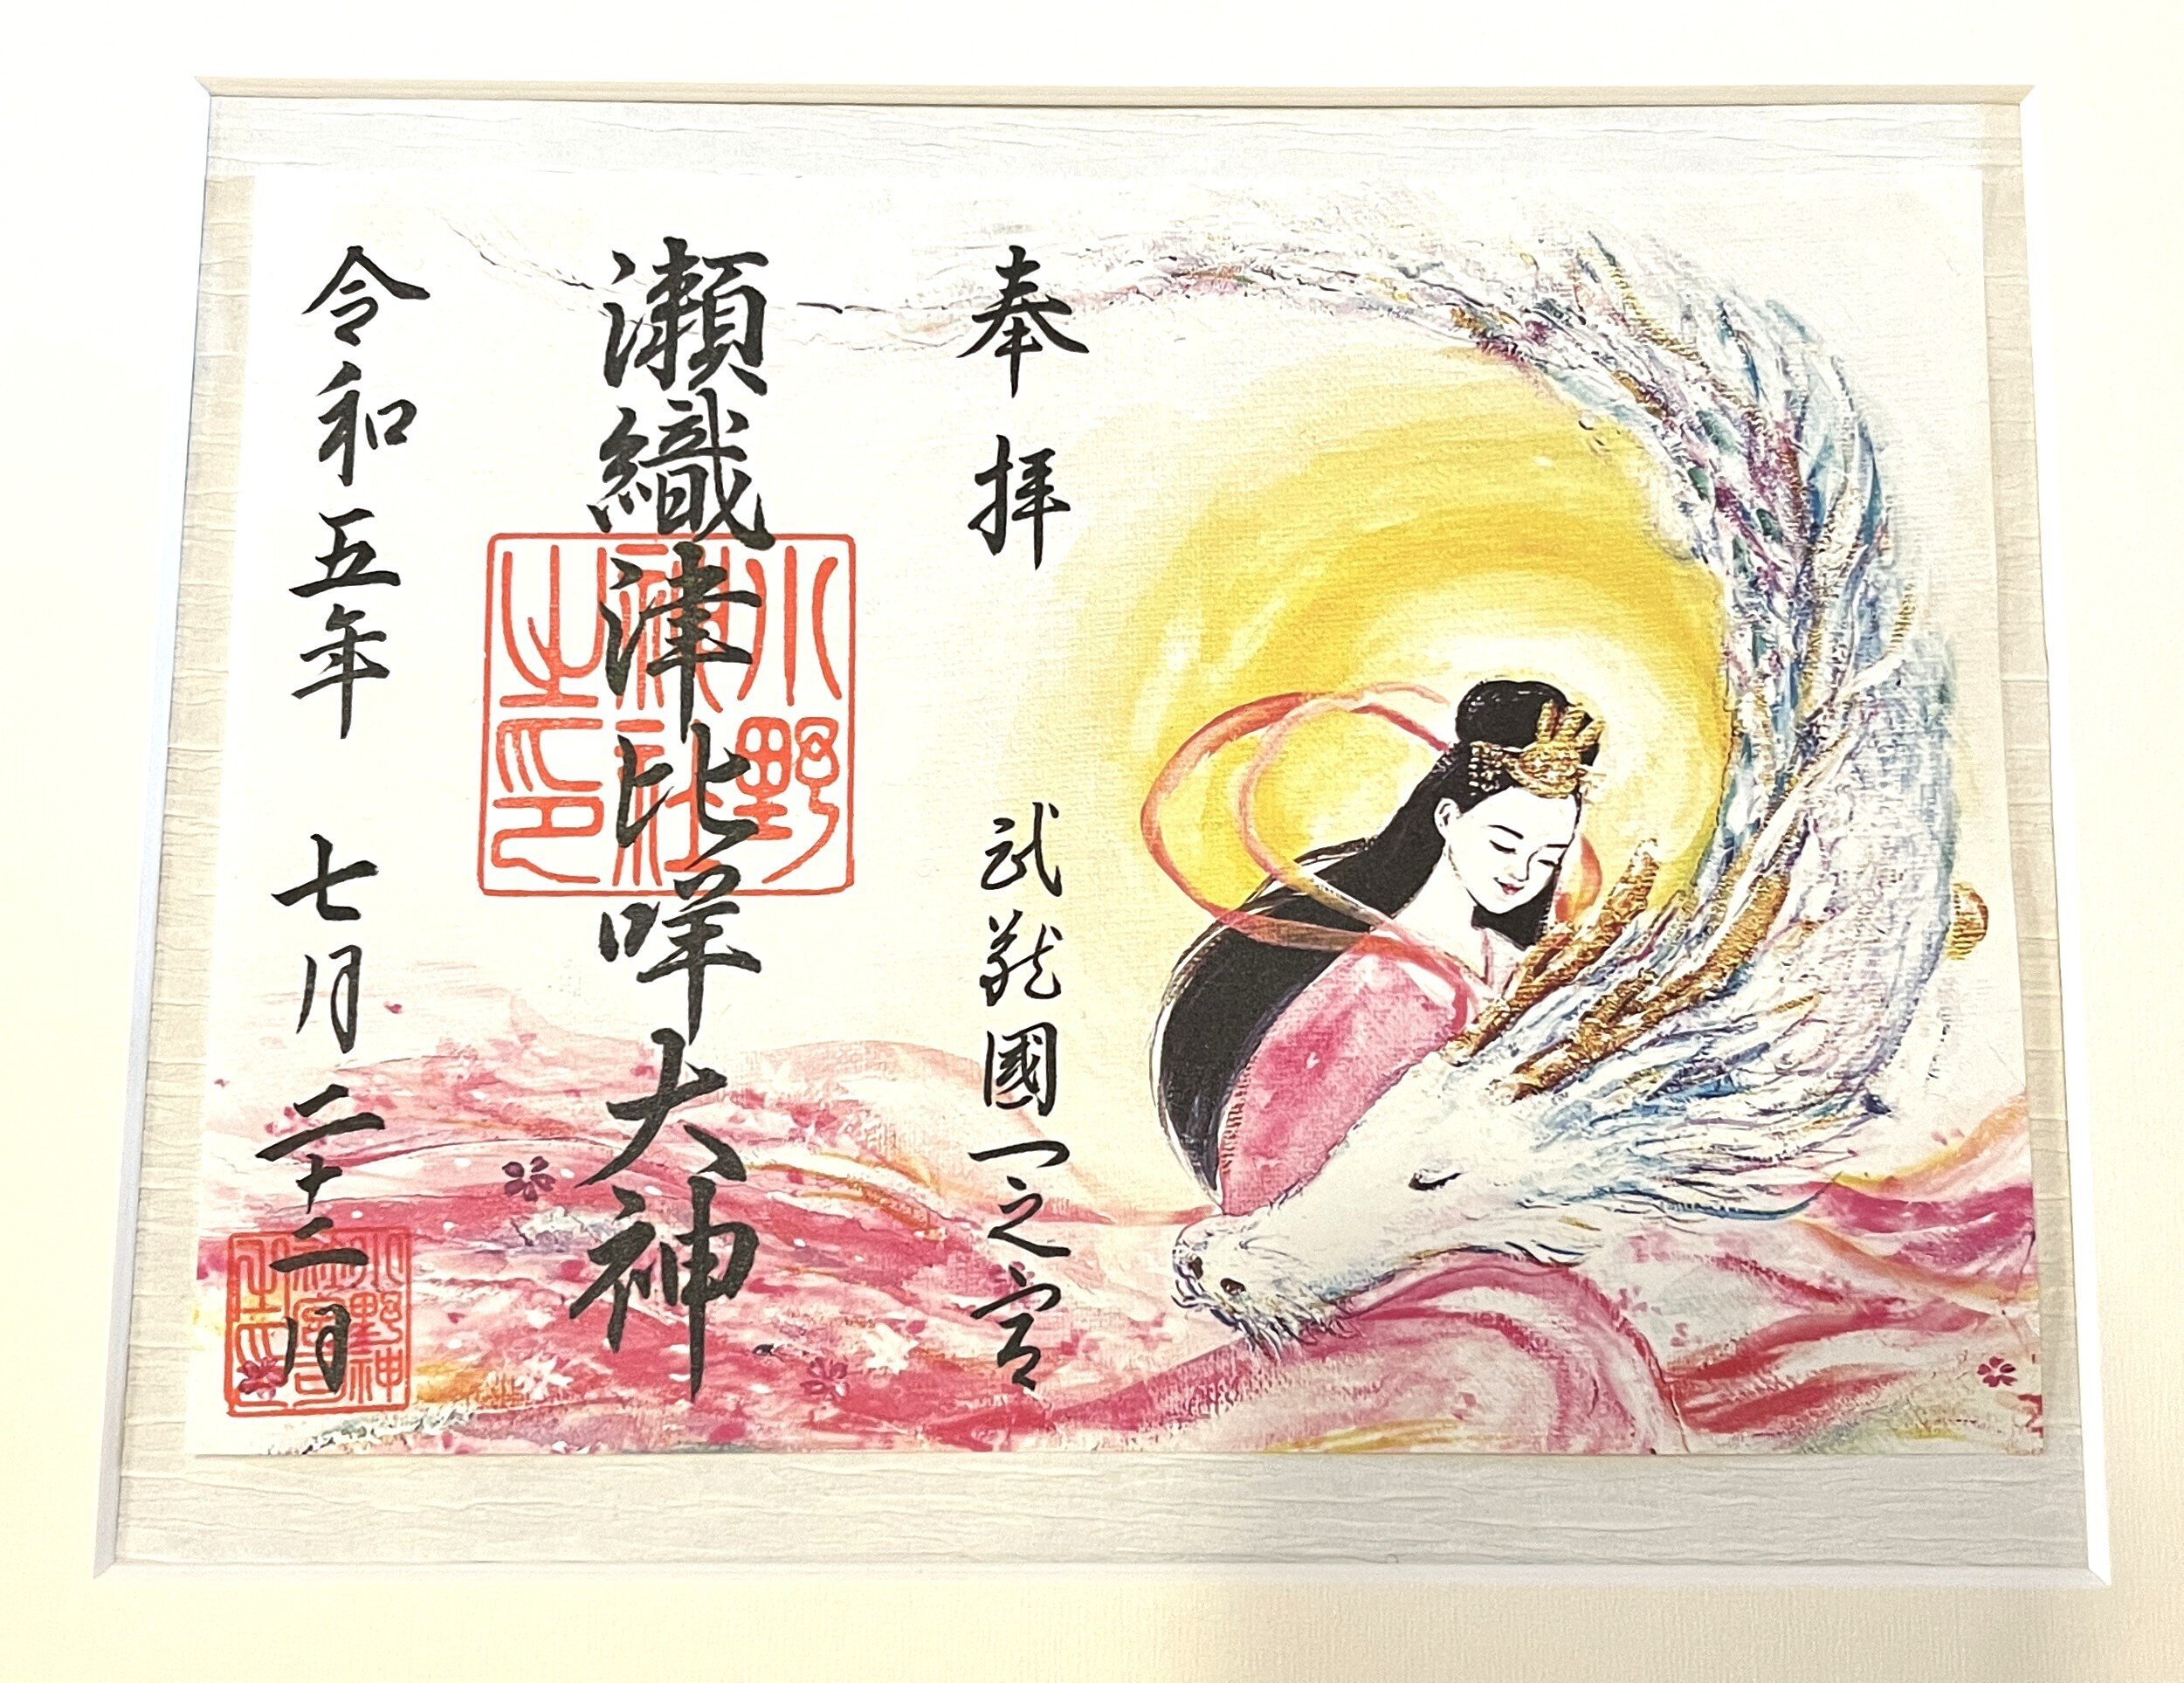 奉拝
武蔵國一之宮
瀬織津比咩大神
小野
神社
之印
令和五年 七月二十二日
小野神
社宮司
之印